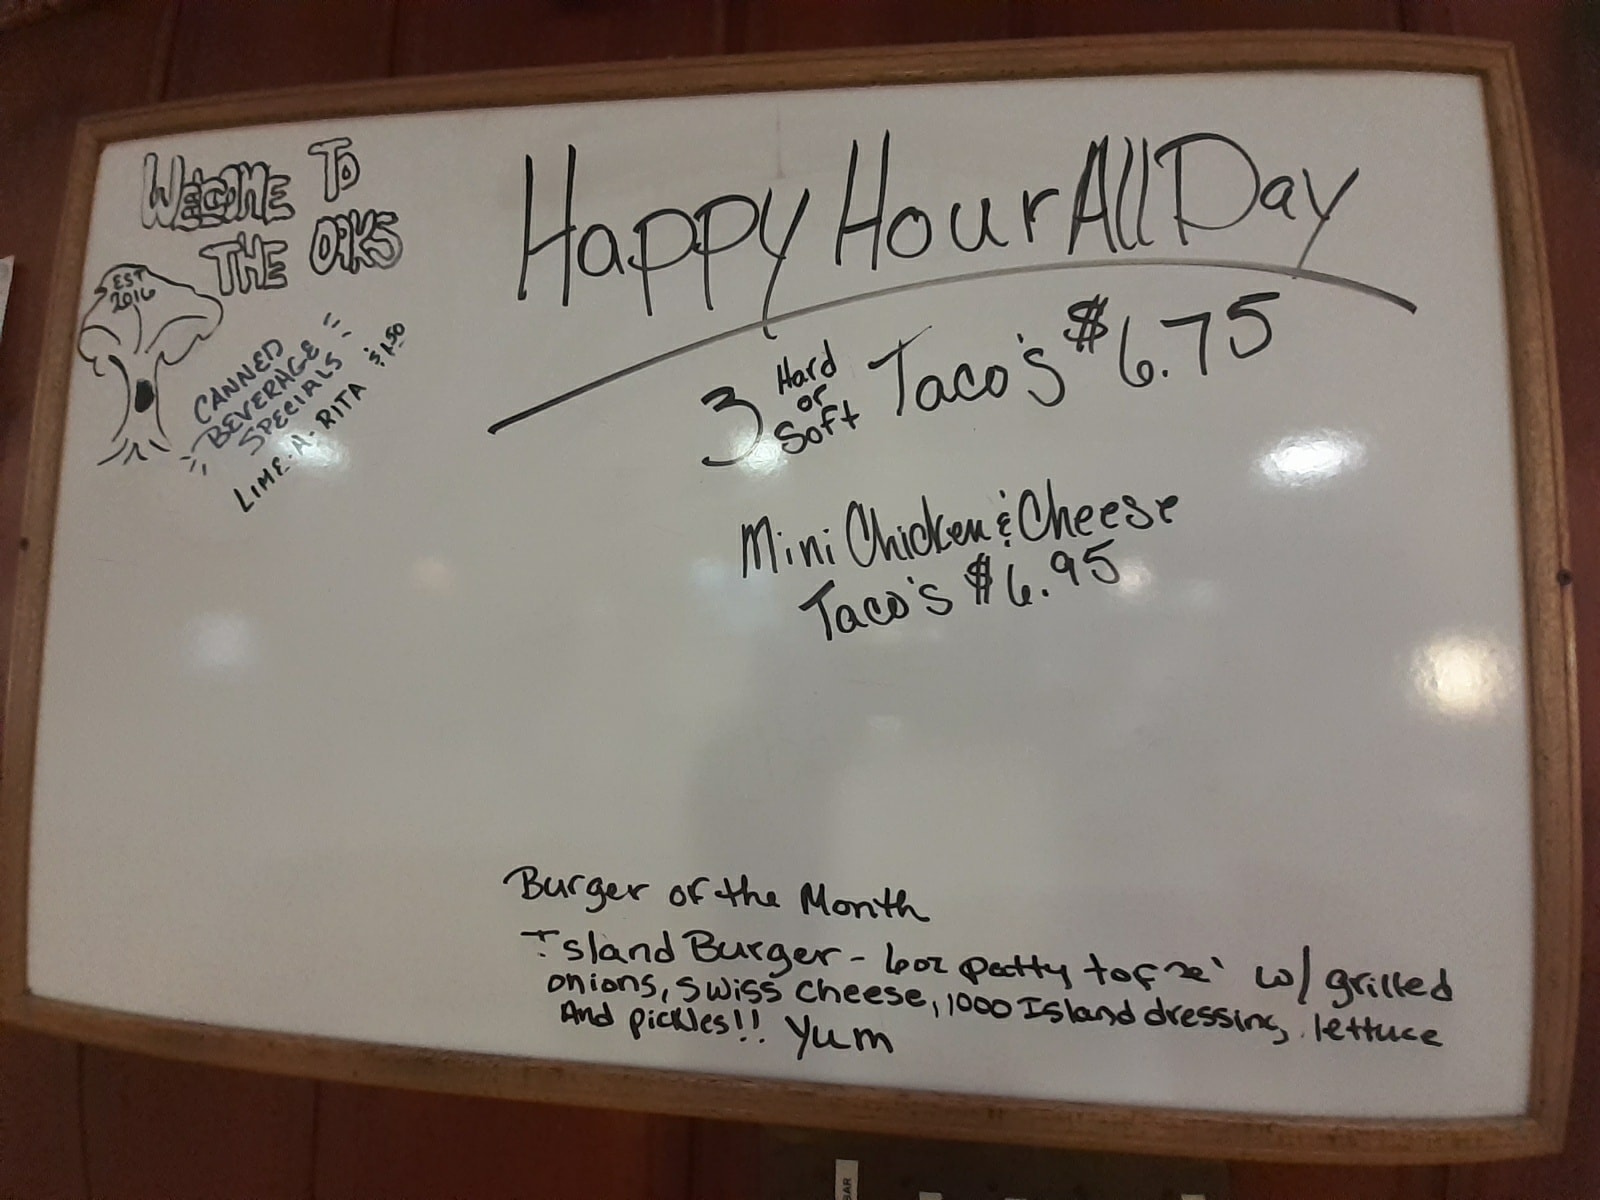 WELCOME TO
THE OAKS
EST
2016
CANNED
BEVERAGE
SPECIALS
LIME-A-RITA $1.50
Happy Hour All Day
3 Hard or Soft Taco's $6.75
Mini Chicken & Cheese
Taco's $6.95
Burger of the Month
Island Burger - 6oz patty w/ grilled
onions, swiss cheese, 1000 Island dressing, lettuce
And pickles!! Yum
BAR